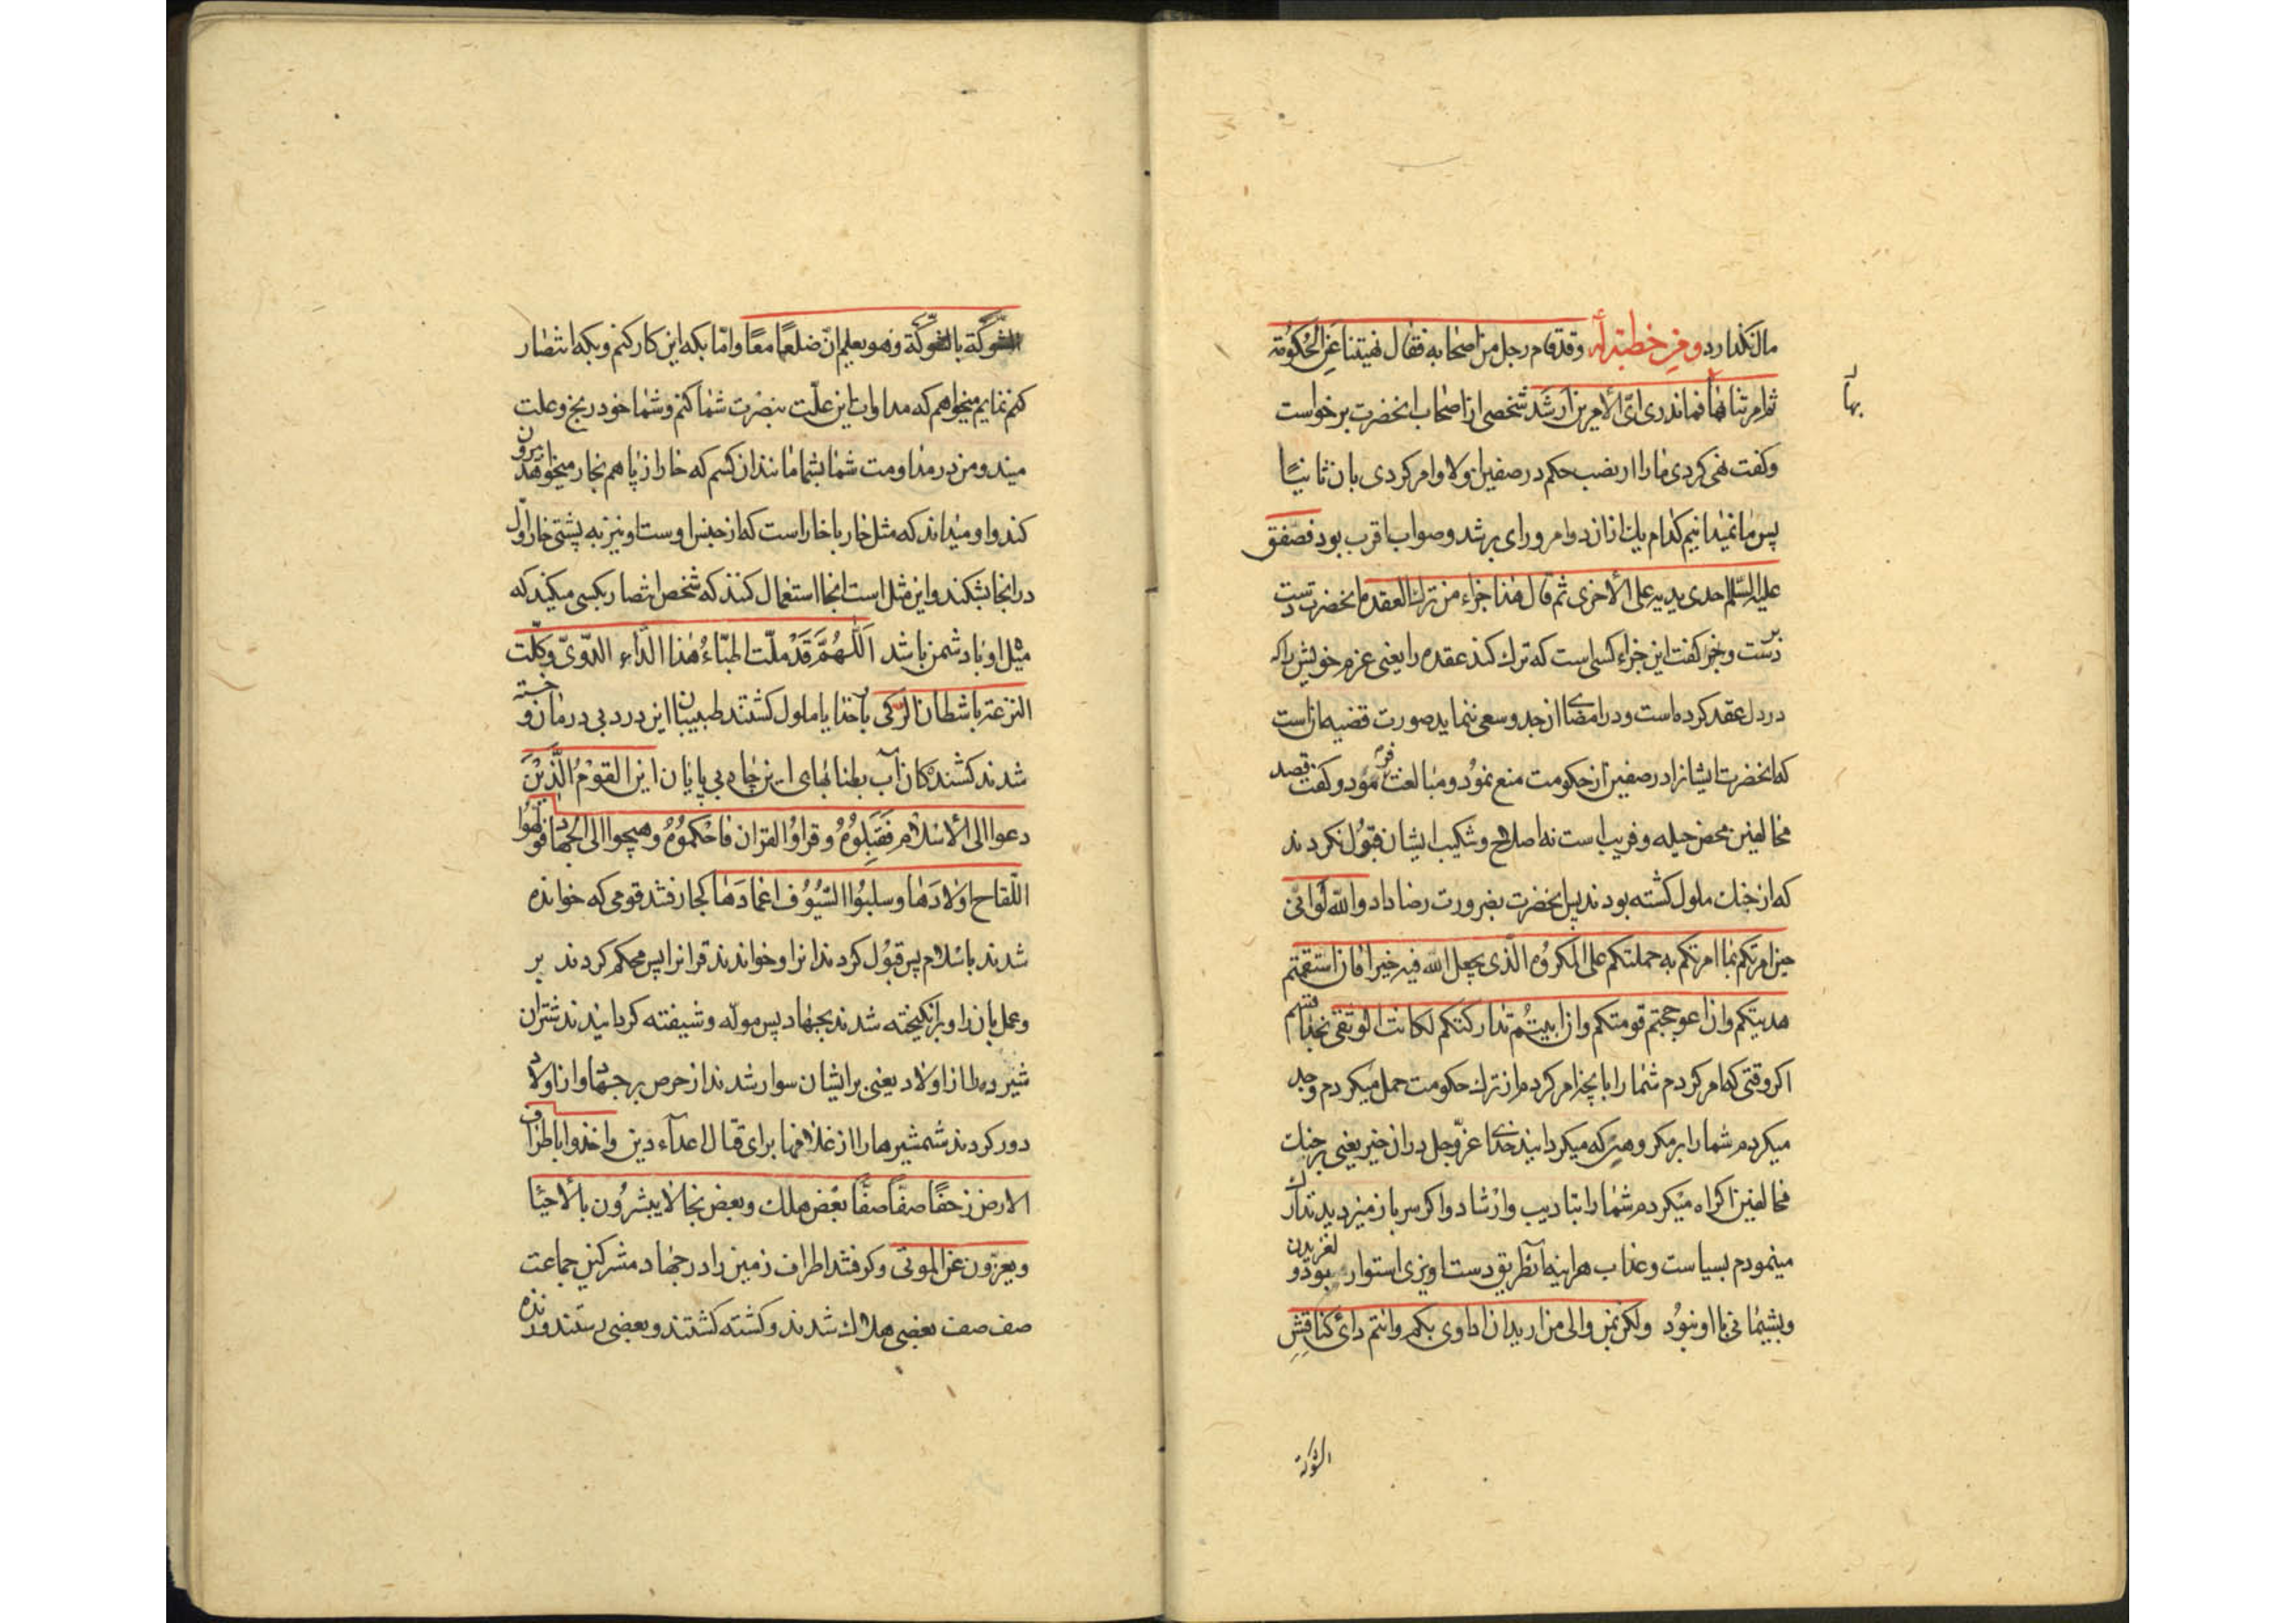 مال نگذارد ومن خطبة له وقد قام رجل من اصحابه فقال نهیتنا عن الحکومة
ثم امرتنا بها فما ندری ایّ الامرین ارشد شخصی از اصحاب انحضرت برخواست
بها
وکفت نهی کردی ما را از نصب حکم در صفین اولا وامر کردی بان ثانیًا
پس ما نمیدانیم کدام یك از ان دو امر ورای برشد وصواب اقرب بود فصفق
علیه السّلم احدی یدیه علی الأخری ثم قال هذا جزاء من ترك العقدة انحضرت دست
بر دست وکفت این جزاء کسی است که ترك کند عقده را یعنی عزم خویش را که
در دل عقد کرده است ودر امضای ان جد وسعی ننماید صورت قضیه انست
که انحضرت ایشانرا در صفین از حکومت منع نمود ومبالغت فرمود وکفت قصد
مخالفین محض حیله وفریب است نه اصلاح وشکیب ایشان قبول نکردند
که از جنك ملول کشته بودند پس انحضرت بضرورت رضا داد والله لو انّی
حین امرتکم بما امرتکم به حملتکم علی المکروه الّذی یجعل الله فیه خیرا فان استقمتم
هدیتکم وان اعوججتم قومتکم وان ابیتم تدارکتکم لکانت الوثقی بخدا قسم
اکر وقتی که امر کردم شما را بانچه امر کردم از ترك حکومت حمل میکردم وجد
میکردم شما را بر مکروهی که میکردانید خدای عزّ وجل در ان خیر یعنی بر جنك
مخالفین اکراه میکردم شما را بتادیب وارشاد واکر سر باز میزدید تدارك
مینمودم بسیاست وعذاب هراینه آنطریق دست اویزی استوار بود ولغزیدن
وپشیمانی با او نبود ولکن بمن والی من ارید ان اداوی بکم وانتم دائی کناقش
الشوکة
الشوکة بالشوکة وهو یعلم ان ضلعها معها وامّا بکه این کار کنم وبکه انتصار
کنم نمایم میخواهم که مداوات این علّت بنصرت شما کنم وشما خود رنج وعلت
منید ومن در مداومت شما بشما مانند ان کسم که خار از پا هم بخار میخواهد بیرون
کند واو میداند که مثل خار با خار است که از جنس اوست او نیز به پشتی خار اول
در انجا بشکند واین مثل است انجا استعمال کنند که شخص انتصار بکسی میکند که
میل او با دشمن باشد اللّهمّ قد ملّت اطبّاء هذا الدّاء الدّویّ وکلّت
النزعة باشطان الرّکی بار خدایا ملول کشتند طبیبان این درد بی درمان وخسته
شدند کشندکان آب بطنابهای این چاه بی پایان این القوم الّذین
دعوا الی الاسلام فقبلوه وقراوا القران فاحکموه وهیجوا الی الجهاد فولّهوا
اللّقاح اولادها وسلبوا السّیوف اغمادها کجا رفتند قومی که خوانده
شدند باسلام پس قبول کردند انرا وخواندند قرانرا پس محکم کردند بر
وعمل بان را وبرانکیخته شدند بجهاد پس موله وشیفته کردانیدند شتران
شیرده را از اولاد یعنی بر ایشان سوار شدند از حرص بر جهاد واز اولاد
دور کردند شمشیرها را از غلافها برای قتال اعداء دین واخذوا باطراف
الارض زحفًا صفًّا صفًّا بعض هلك وبعض نجا لا یبشرون بالأحیا
ویعزّون عن الموتی وکرفتند اطراف زمین را در جهاد مشرکین جماعت
صف صف بعضی هلاك شدند وکشته کشتند وبعضی رستند وزنده